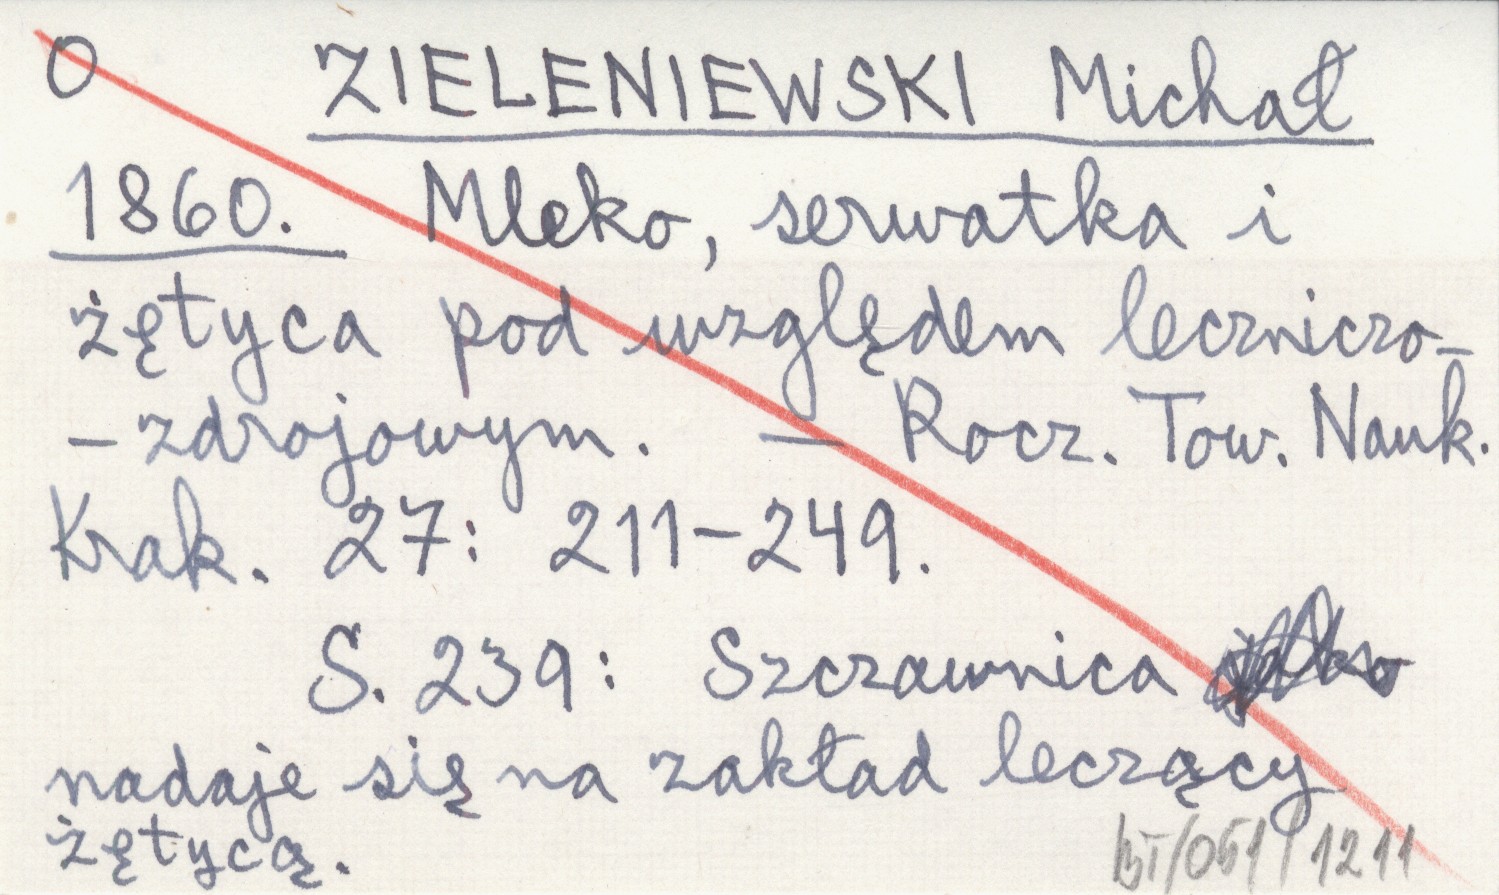 O ZIELENIEWSKI Michał
1860. Mleko, serwatka i
żętyca pod względem leczniczo-
-zdrojowym. — Rocz. Tow. Nauk.
Krak. 27: 211-249.
S. 239: Szczawnica
nadaje się na zakład leczący
żętycą.
BI/051/1211